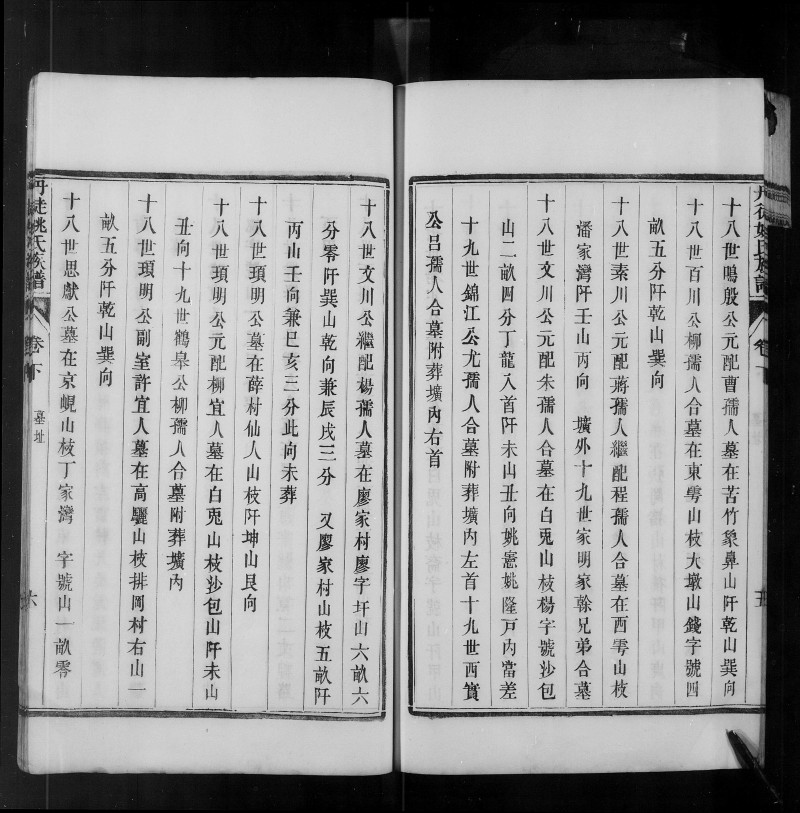 十八世鳴殷公元配曹孺人墓在苦竹象鼻山阡乾山巽向
十八世百川公柳孺人合墓在東雩山枝大墩山錢字號四
畝五分阡乾山巽向
十八世秦川公元配蔣孺人繼配程孺人合墓在西雩山枝
潘家灣阡壬山丙向 壙外十九世家明家榦兄弟合墓
十八世文川公元配朱孺人合墓在白兎山枝楊字號沙包
山二畝四分丁龍入首阡未山丑向姚憲姚隆戸內當差
十九世錦江公尤孺人合墓附葬壙內左首十九世西賓
公呂孺人合墓附葬壙內右首
十八世文川公繼配楊孺人墓在廖家村廖字圩山六畝六
分零阡巽山乾向兼辰戌三分 又廖家村山枝五畝阡
丙山壬向兼巳亥三分此向未葬
十八世頊明公墓在薛村仙人山枝阡坤山艮向
十八世頊明公元配柳宜人墓在白兎山枝沙包山阡未山
丑向十九世鶴皋公柳孺人合墓附葬壙內
十八世頊明公副室許宜人墓在高驪山枝排岡村右山一
畝五分阡乾山巽向
十八世思獻公墓在京峴山枝丁家灣 字號山一畝零
丹徒姚氏族譜 卷下 墓址 六